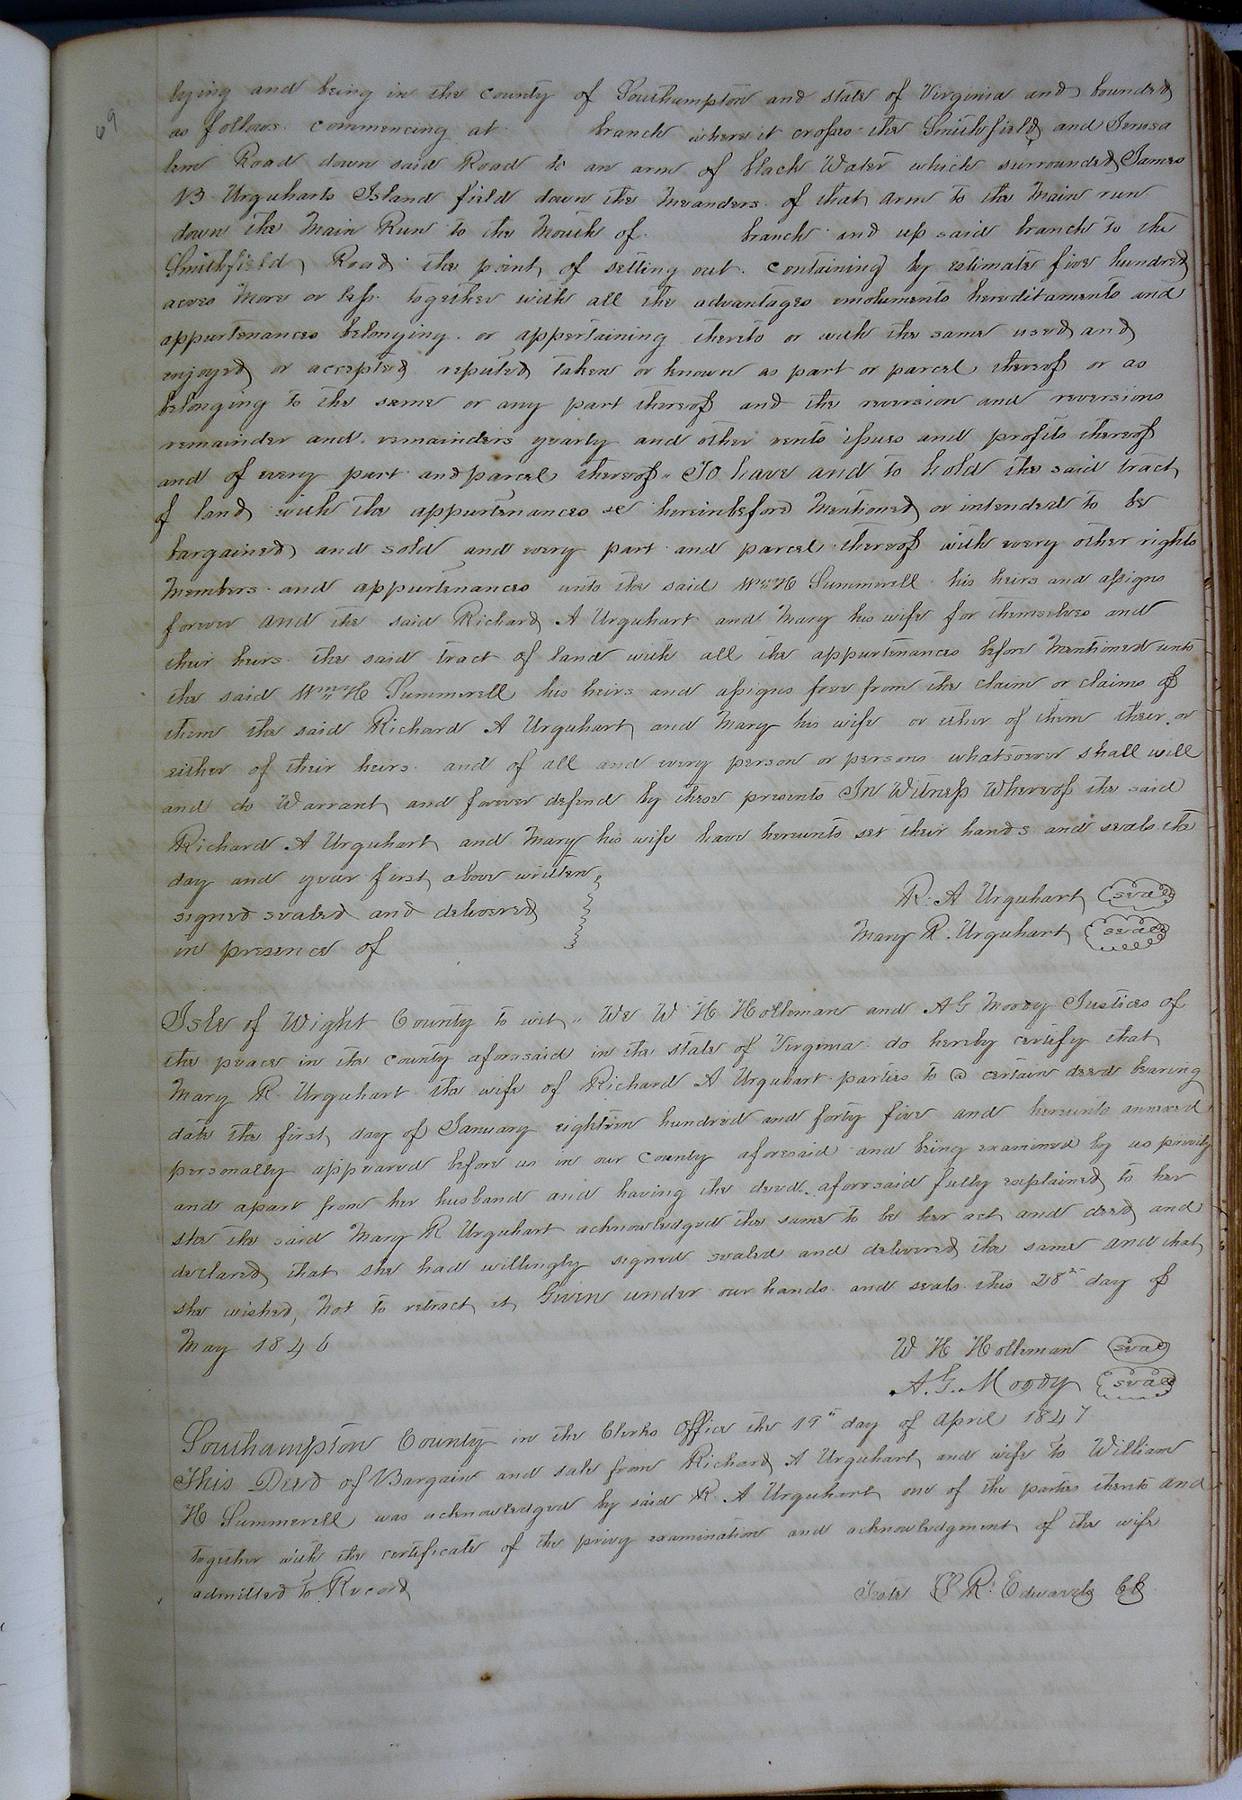 69
lying and being in the county of Southampton and state of Virginia and bounded
as follows. commencing at branch where it crosses the Smithfield and Jerusa
lem Road down said Road to an arm of black Water which surrounded James
B Urquharts Island field down the Meanders of that arm to the Main run
down the Main Run to the Mouth of branch and up said branch to the
Smithfield Road the point of setting out. containing by estimate five hundred
acres more or less together with all the advantages emoluments hereditaments and
appurtenances belonging or appertaining thereto or with the same used and
enjoyed or accepted reputed taken or known as part or parcel thereof or as
belonging to the same or any part thereof and the reversion and reversions
remainder and remainders yearly and other rents issues and profits thereof
and of every part and parcel thereof " To have and to hold the said tract
of land with the appurtenances &c hereinbefore mentioned or intended to be
bargained and sold and every part and parcel thereof with every other rights
members and appurtenances unto the said Wm H Summerell his heirs and assigns
forever and the said Richard A Urquhart and Mary his wife for themselves and
their heirs the said tract of land with all the appurtenances before mentioned unto
the said Wm H Summerell his heirs and assigns free from the claim or claims of
them the said Richard A Urquhart and Mary his wife or either of them their or
either of their heirs and of all and every person or persons whatsoever shall will
and do Warrant and forever defend by these presents In Witness Whereof the said
Richard A Urquhart and Mary his wife have hereunto set their hands and seals the
day and year first above written
signed sealed and delivered R. A Urquhart seal
in presence of Mary R. Urquhart seal
Isle of Wight County to wit " We W H Holleman and A G Moody Justices of
the peace in the county aforesaid in the state of Virginia do hereby certify that
Mary R Urquhart the wife of Richard A Urquhart parties to a certain deed bearing
date the first day of January eighteen hundred and forty five and hereunto annexed
personally appeared before us in our County aforesaid and being examined by us privily
and apart from her husband and having the deed aforesaid fully explained to her
she the said Mary R Urquhart acknowledged the same to be her act and deed and
declared that she had willingly signed sealed and delivered the same and that
she wished, not to retract it Given under our hands and seals this 28th day of
May 1846 W H Holleman seal
A. G. Moody seal
Southampton County in the Clerks Office the 19th day of April 1847
This Deed of Bargain and sale from Richard A Urquhart and wife to William
H Summerell was acknowledged by said R A Urquhart one of the parties thereto and
together with the certificate of the privy examination and acknowledgment of the wife
admitted to Record Teste L R Edwards Clk